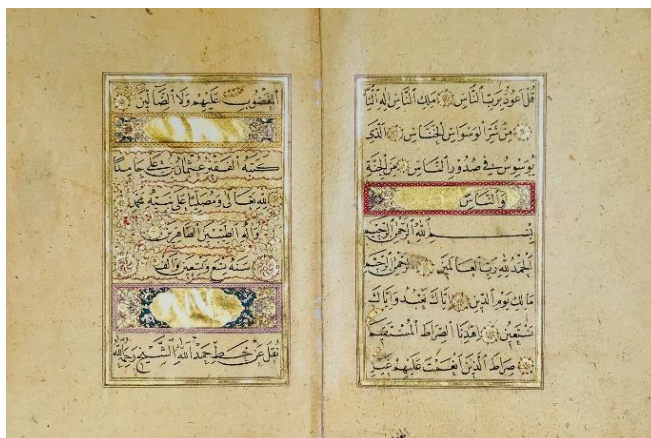 قُلْ اَعُوذُ بِرَبِّ النَّاسِ مَلِكِ النَّاسِ اِلٰهِ النَّا
سِ مِنْ شَرِّ الْوَسْوَاسِ الْخَنَّاسِ الَّذِى
يُوَسْوِسُ فِى صُدُورِ النَّاسِ مِنَ الْجِنَّةِ
وَالنَّاسِ
بِسْمِ اللّٰهِ الرَّحْمٰنِ الرَّحِيمِ
اَلْحَمْدُ لِلّٰهِ رَبِّ الْعَالَمِينَ الرَّحْمٰنِ الرَّحِيمِ
مَالِكِ يَوْمِ الدِّينِ اِيَّاكَ نَعْبُدُ وَاِيَّاكَ
نَسْتَعِينُ اِهْدِنَا الصِّرَاطَ الْمُسْتَقِيمَ
صِرَاطَ الَّذِينَ اَنْعَمْتَ عَلَيْهِمْ غَيْرِ
الْمَغْضُوبِ عَلَيْهِمْ وَلَا الضَّالِّينَ
كتبه الفقير عثمان بن علي حامدا
لله تعالى ومصليا على نبيه محمد
وآله الطيبين الطاهرين
سنة تسع وتسعين والف
نقل عن خط حمد الله الشيخ رحمه الله